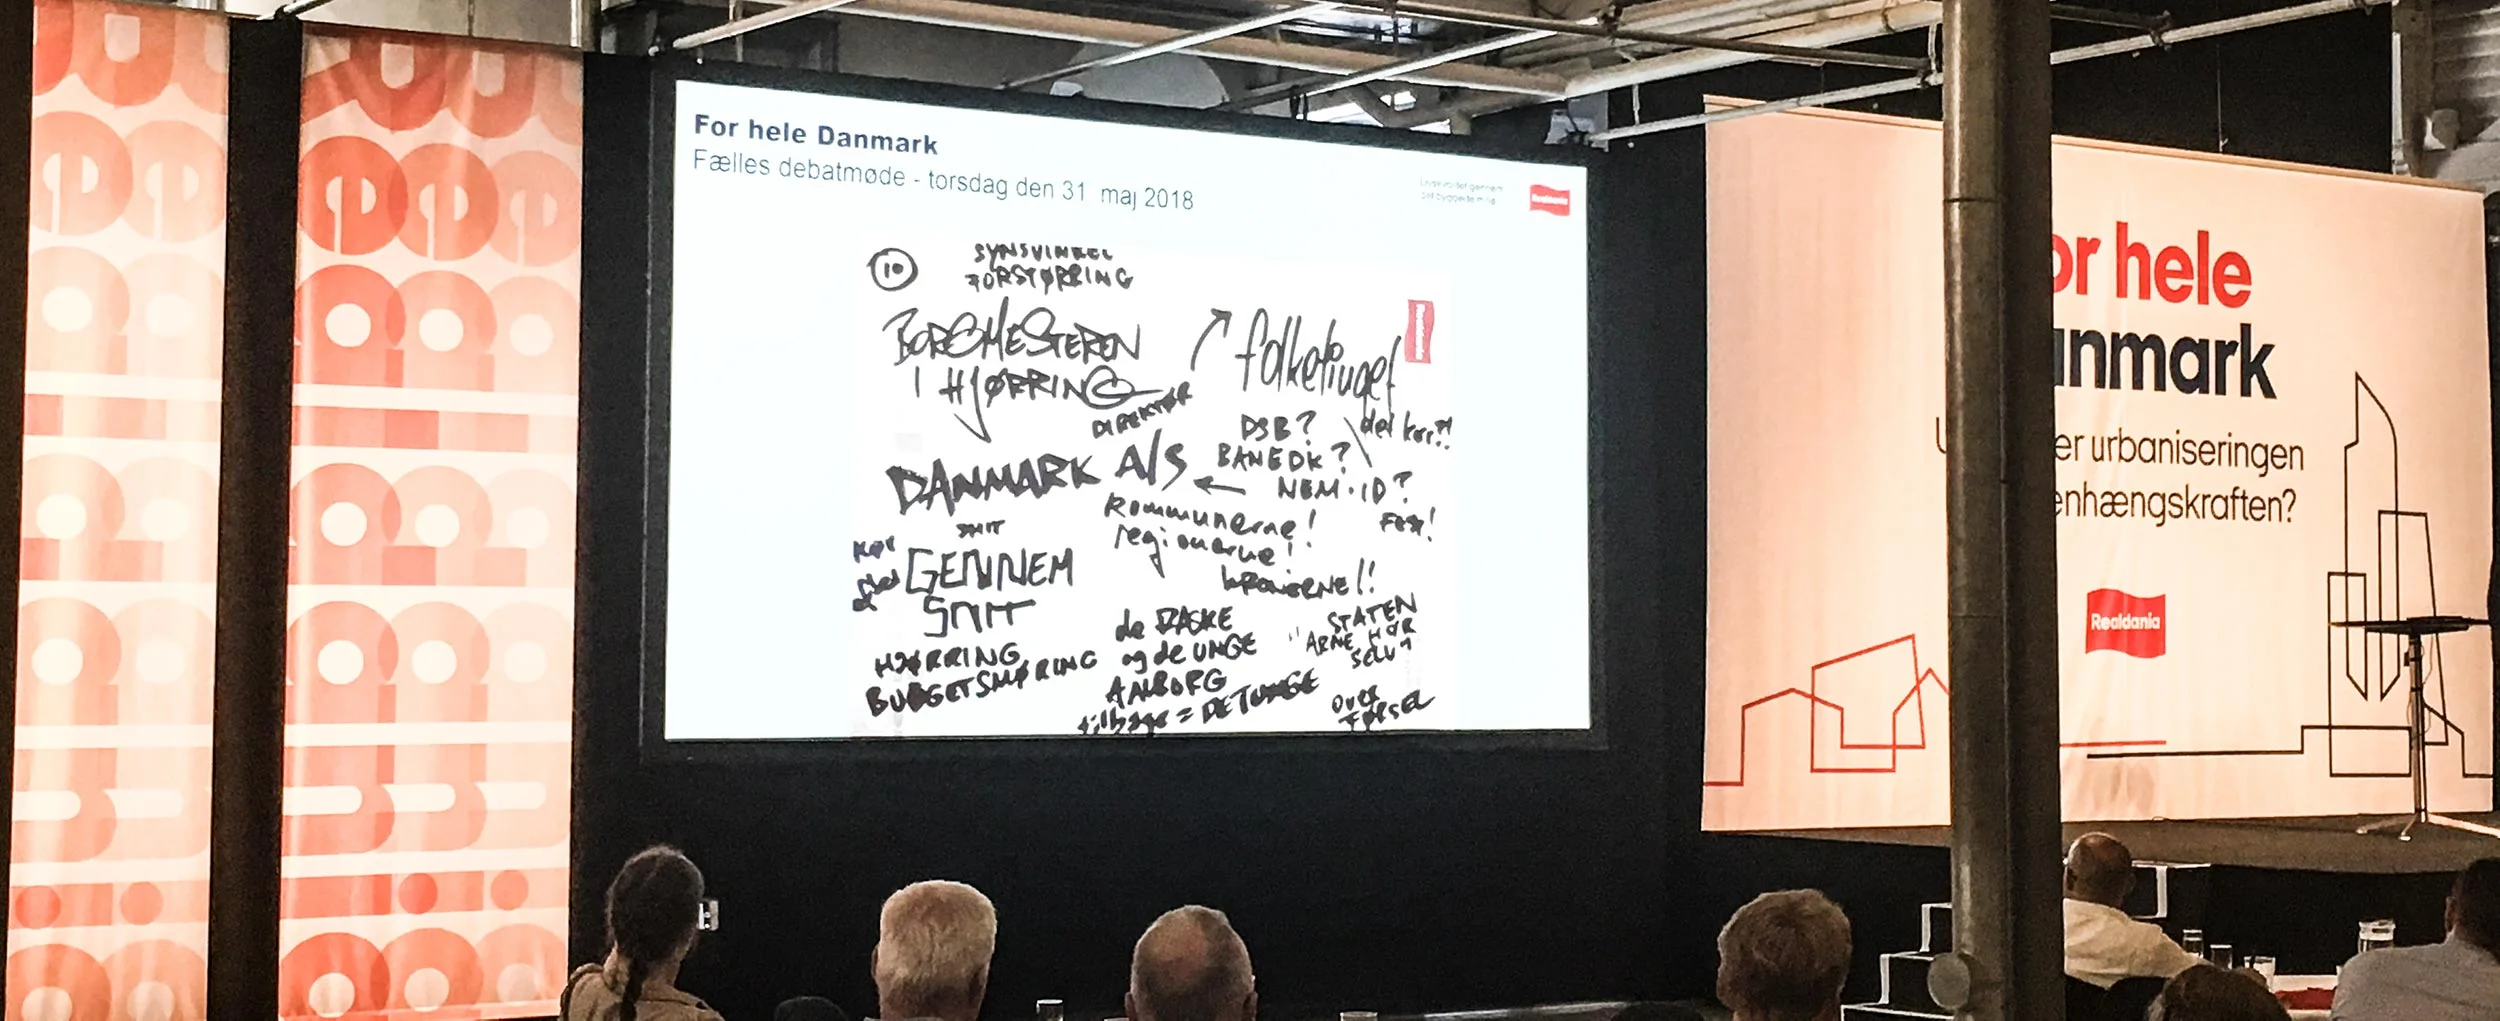 For hele Danmark
Fælles debatmøde - torsdag den 31 maj 2018
Realdania
10
SYNSVINKEL
FORSTØRRING
BORGMESTEREN
I HJØRRING
DIREKTØR
folketinget
Realdania
det kor?!
DSB?
BANEDK?
NEM-ID?
DANMARK A/S
Kommunerne!
regionerne!
SNIT
GENNEM
SNIT
HJØRRING
BUDGETSMØRING
de RASKE
og de UNGE
AALBORG
tilbage = DE TUNGE
STATEN
"ARNE HØR
SELV"
OVER
FØRSEL
or hele
nmark
er urbaniseringen
enhængskraften?
Realdania